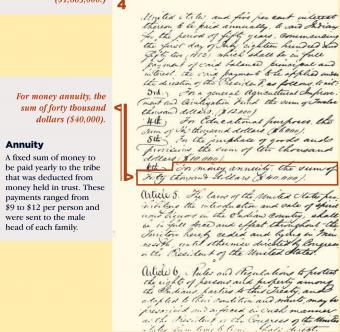 ($1,665,000.)
4
For money annuity, the
sum of forty thousand
dollars ($40,000).
Annuity
A fixed sum of money to
be paid yearly to the tribe
that was deducted from
money held in trust. These
payments ranged from
$9 to $12 per person and
were sent to the male
head of each family.
United States and five per cent interest
thereon to be paid annually, to said Indians
for the period of fifty years, commencing
the first day of July eighteen hundred and
fifty two, 1852, which shall be in full
payment of said balance, principal and
interest, the said payment to be applied under
the direction of the President as follows to wit
3rd. For a general Agricultural Improve-
ment and Civilization Fund the sum of Twelve
thousand dollars ($12,000.)
4th For Educational purposes, the
sum of Six thousand dollars ($6,000.)
5th In the purchase of goods and
provisions the sum of Ten thousand
dollars, ($10,000.)
6th For money annuity, the sum of
Forty thousand Dollars ($40,000.)
Article 5. The laws of the United States pro-
hibiting the introduction and sale of spiritu-
ous liquors in the Indian Country, shall
be in full force and effect throughout the
Territory hereby ceded and lying in Minn-
esota, until otherwise directed by Congress
or the President of the United States.
Article 6. Rules and Regulations to protect
the rights of persons and property among
the Indians, parties to this Treaty, and
adapted to their condition and wants, may be
prescribed and enforced in such manner
as the President or the Congress of the United
States from time to time shall direct.